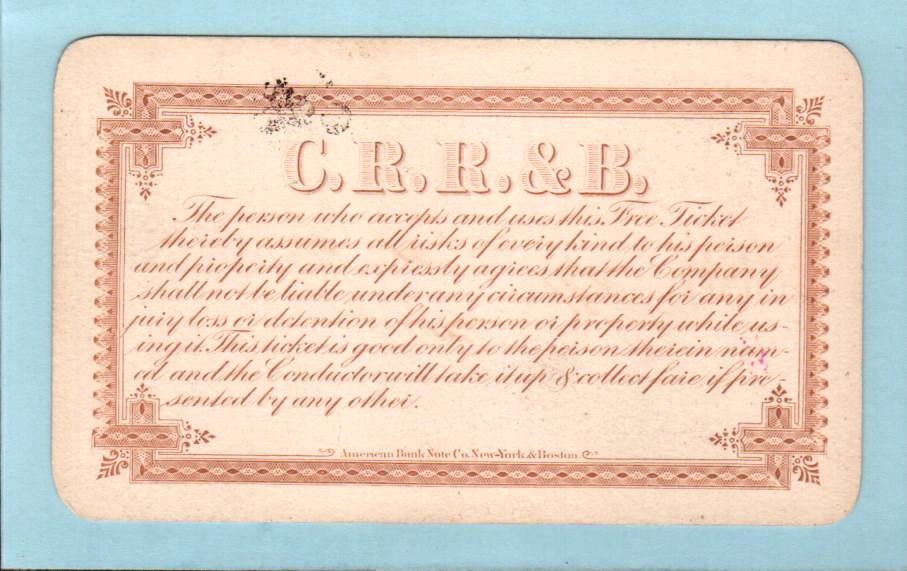 C.R.R.&B.
The person who accepts and uses this Free Ticket
thereby assumes all risks of every kind to his person
and property and expressly agrees that the Company
shall not be liable under any circumstances for any in
jury loss or detention of his person or property while us-
ing it. This ticket is good only to the person therein nam-
ed and the Conductor will take it up & collect fare if pre
sented by any other.
American Bank Note Co. New-York & Boston.